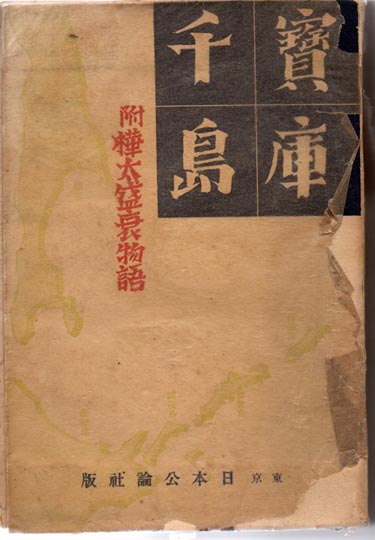 寶庫
千島
附樺太盛衰物語
東京 日本公論社版